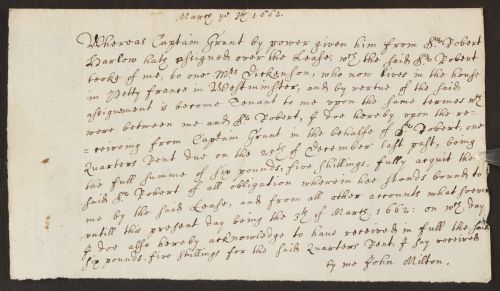 March ye 3th 1662.
Whereas Captain Grant by power given him from Sr. Robert
Harlow hath assigned over the Lease, wch the said Sr. Robert
tooke of me, to one Mrs. Dickenson, who now lives in the house
in Petty france in Westminster, and by vertue of the said
assignment is become Tenant to me upon the same termes wch
were between me and Sr. Robert, I doe hereby upon the re=
=ceiveing from Captain Grant in the behalfe of Sr. Robert, one
Quarters Rent due on the 25th of December last past, being
the full summe of six pounds, five shillings, fully acquit the
said Sr. Robert of all obligation wherein hee stands bound to
me by the said Lease, and from all other accounts whatsoever
untill this present day being the 3th of March 1662: on wch day
I doe also hereby acknowledge to have received in full the said
six pounds. five shillings for the said Quarters Rent, I say received
by me John Milton.